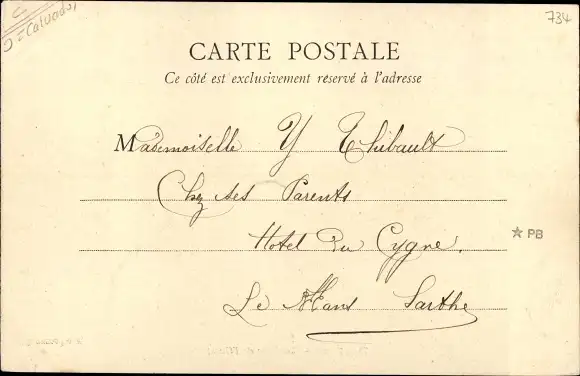 734
CARTE POSTALE
Ce côté est exclusivement réservé à l'adresse
Mademoiselle Y Thibault
Chez ses Parents
Hotel Du Cygne.
Le Mans Sarthe
★ PB